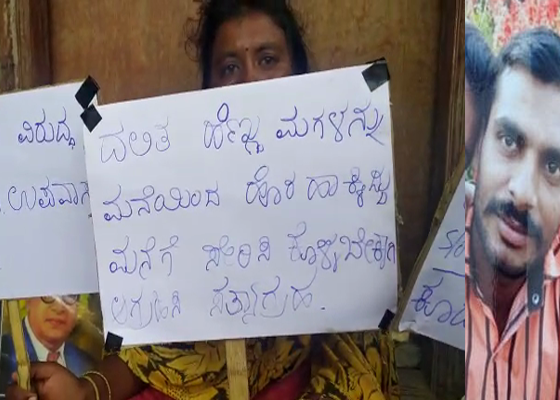 ವಿರುದ್ಧ
ಉಪವಾಸ
ದಲಿತ ಹೆಣ್ಣು ಮಗಳನ್ನು
ಮನೆಯಿಂದ ಹೊರ ಹಾಕಿದ್ದು
ಮನೆಗೆ ಸೇರಿಸಿ ಕೊಳ್ಳಬೇಕಾಗಿ
ಆಗ್ರಹಿಸಿ ಸತ್ಯಾಗ್ರಹ.